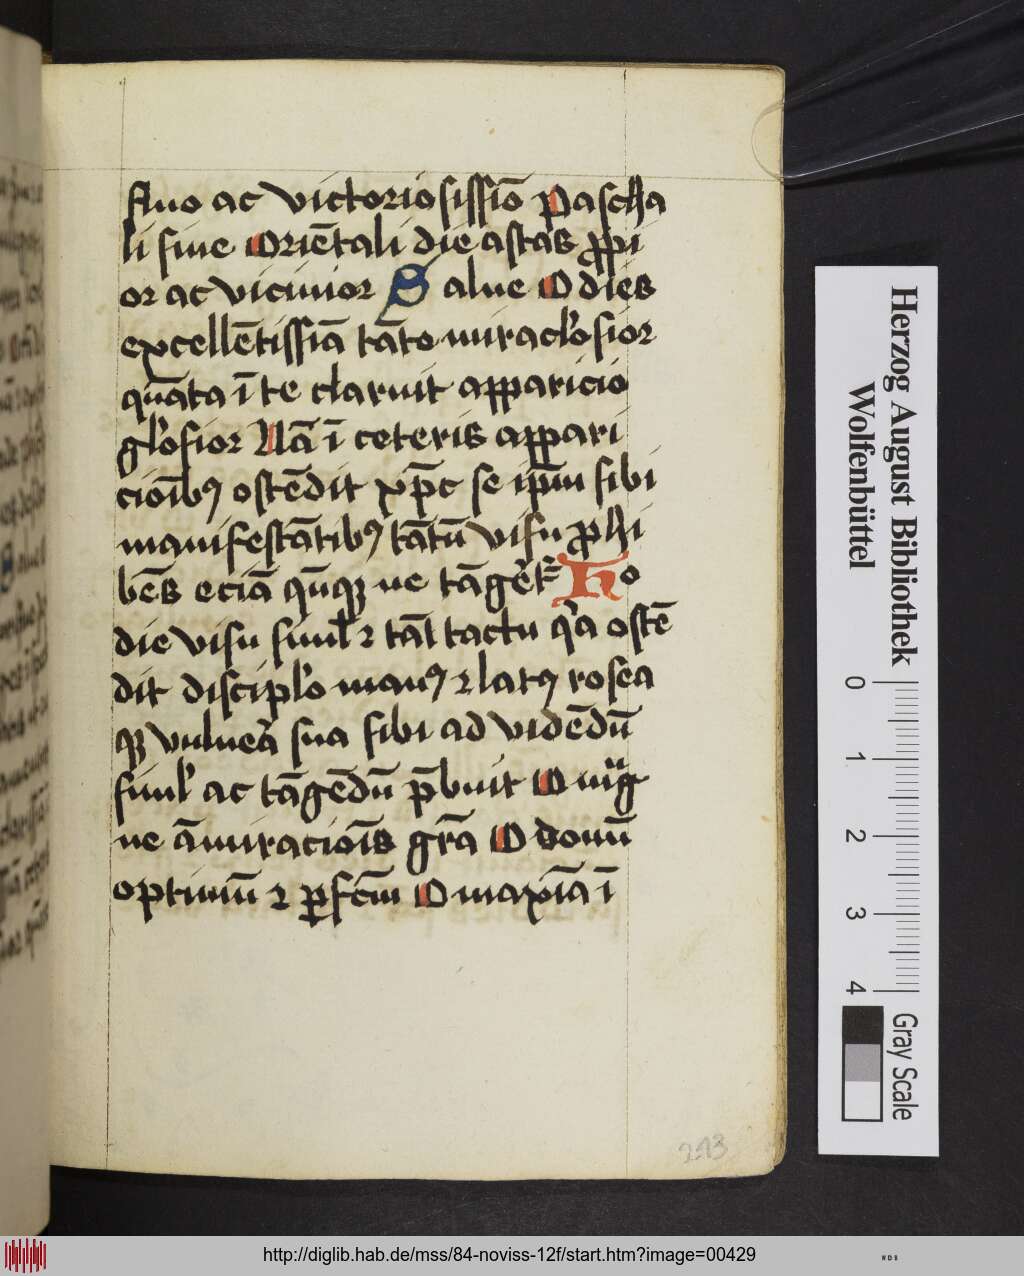 stiuo ac victoriosissīo Pascha
li siue Oriētali die astas ꝓpi
or ac vicinior Salue O dies
excellētissīa tāto miracl'osior
quāta ī te claruit apparicio
gl'osior Nā ī ceteris appari
cioībꝰ ostēdit xp̄c se ip̄m sibi
manifestātibꝰ tātū visu ꝓhi
bēs eciā qn̄qꝫ ne tāger̄t᷑ Ho
die visu simul ⁊ tāl tactu qͣa ostē
dit discipl'o manꝰ ⁊ latꝰ rosea
qꝫ vulnera sua sibi ad vidēdū
simul' ac tāgēdū p̄buit O mͣg
ne āmiracioīs gr̄a O donū
optimū ⁊ ꝑfcm̄ O maxīa ī
213
Herzog August Bibliothek
Wolfenbüttel
0 1 2 3 4
Gray Scale
http://diglib.hab.de/mss/84-noviss-12f/start.htm?image=00429